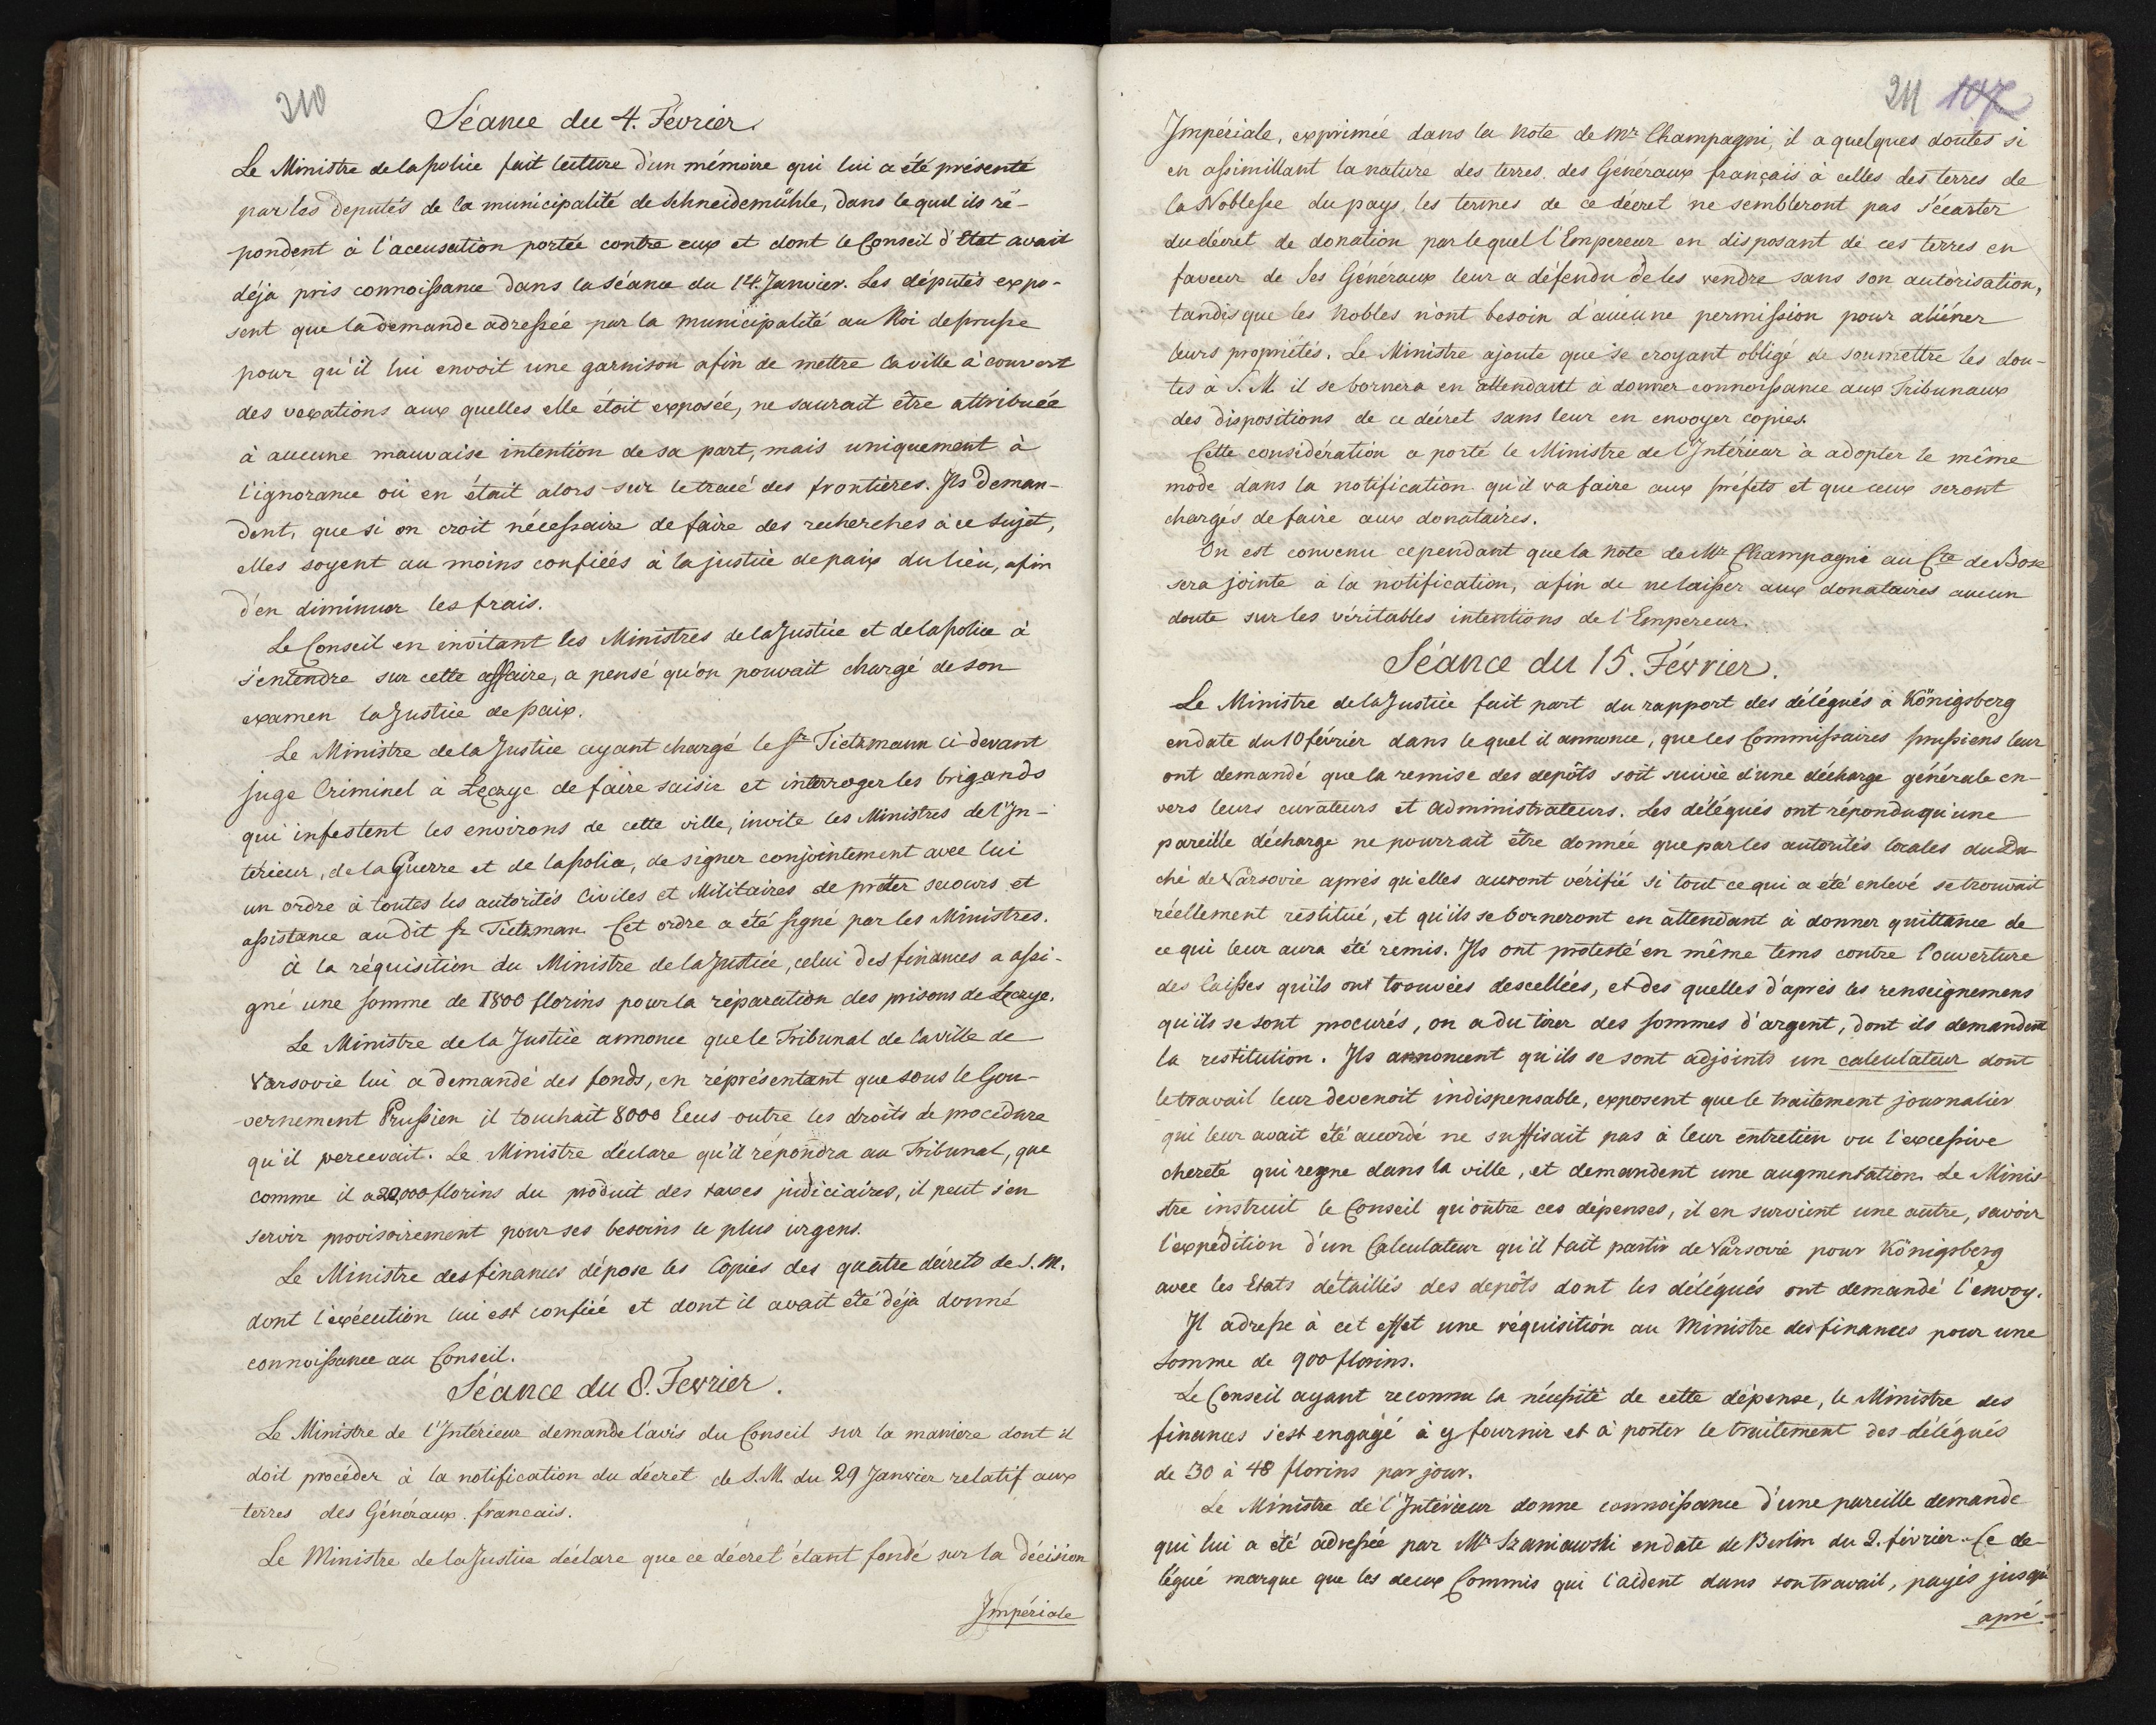 210
Séance du 4. Février.
Le Ministre de la police fait lecture d'un mémoire qui lui a été présenté
par les députés de la municipalité de Schneidemühle, dans lequel ils ré-
pondent à l'accusation portée contre eux et dont le Conseil d'Etat avait
déja pris connoissance dans la séance du 14. Janvier. Les députés expo-
sent que la demande adressée par la municipalité au Roi de prusse
pour qu'il lui envoit une garnison afin de mettre la ville à couvert
des vexations aux quelles elle étoit exposée, ne saurait être attribuée
à aucune mauvaise intention de sa part, mais uniquement à
l'ignorance où en était alors sur le tracé des frontières. Ils deman-
dent, que si on croit nécessaire de faire des recherches à ce sujet,
elles soyent au moins confiées à la justice de paix du lieu, afin
d'en diminuer les frais.
Le Conseil en invitant les Ministres de la Justice et de la police à
s'entendre sur cette affaire, a pensé qu'on pouvait chargé de son
examen la Justice de paix.
Le Ministre de la Justice ayant chargé le Sr Tietzmann ci-devant
juge Criminel à Łęczyc de faire saisir et interroger les brigands
qui infestent les environs de cette ville, invite les Ministres de l'In-
térieur, de la Guerre et de la police, de signer conjointement avec lui
un ordre à toutes les autorités Civiles et Militaires de prêter secours et
assistance au dit Sr Tietzman. Cet ordre a été signé par les Ministres.
à la réquisition du Ministre de la Justice, celui des finances a assi-
gné une somme de 1800 florins pour la réparation des prisons de Łęczyc.
Le Ministre de la Justice annonce que le Tribunal de la ville de
Varsovie lui a demandé des fonds, en réprésentant que sous le Gou-
vernement Prussien il touchait 8000 Ecus outre les droits de procédure
qu'il percevait. Le Ministre déclare qu'il répondra au Tribunal, que
comme il a 20,000 florins du produit des taxes judiciaires, il peut s'en
servir provisoirement pour ses besoins le plus urgens.
Le Ministre des finances dépose les Copies des quatre décrets de S. M.
dont l'exécution lui est confiée et dont il avait été déja donné
connoissance au Conseil.
Séance du 8. Fevrier.
Le Ministre de l'Intérieur demande l'avis du Conseil sur la maniere dont il
doit procéder à la notification du décret de S. M. du 29 Janvier relatif aux
terres des Généraux francais.
Le Ministre de la Justice déclare que ce décret étant fondé sur la décision
Impériale
211 107
Impériale, exprimée dans la note de Mr Champagni, il a quelques doutes si
en assimillant la nature des terres des Généraux français à celles des terres de
la Noblesse du pays, les termes de ce décret ne sembleront pas s'écarter
du décret de donation par lequel l'Empereur en disposant de ces terres en
faveur de Ses Généraux leur a défendu de les vendre sans son autorisation,
tandis que les Nobles n'ont besoin d'aucune permission pour aliéner
leurs propriétés. Le Ministre ajoute que se croyant obligé de soumettre les dou-
tes à S. M. il se bornera en attendant à donner connoissance aux Tribunaux
des dispositions de ce décret sans leur en envoyer copies.
Cette considération a porté le Ministre de l'Intérieur à adopter le même
mode dans la notification qu'il va faire aux préfets et que ceux seront
chargés de faire aux donataires.
On est convenu cependant que la note de Mr Champagni au Cte de Bose
sera jointe à la notification, afin de ne laisser aux donataires aucun
doute sur les véritables intentions de l'Empereur.
Séance du 15. Février.
Le Ministre de la Justice fait part du rapport des délégués à Königsberg
en date du 10 février dans lequel il annonce, que les Commissaires prussiens leur
ont demandé que la remise des depôts soit suivie d'une décharge générale en-
vers leurs curateurs et administrateurs. Les délégués ont répondu qu'une
pareille décharge ne pourrait être donnée que par les autorités locales du Du
ché de Varsovie après qu'elles auront vérifié si tout ce qui a été enlevé se trouvait
réellement restitué, et qu'ils se borneront en attendant à donner quittance de
ce qui leur aura été remis. Ils ont protesté en même tems contre l'ouverture
des Caisses qu'ils ont trouvées descellées, et des quelles d'après les renseignemens
qu'ils se sont procurés, on a du tirer des sommes d'argent, dont ils demandent
la restitution. Ils annoncent qu'ils se sont adjoints un calculateur dont
le travail leur devenoit indispensable, exposent que le traitement journalier
qui leur avait été accordé ne suffisait pas à leur entretien vu l'excessive
cherete qui regne dans la ville, et demandent une augmentation. Le Minis
tre instruit le Conseil qu'outre ces dépenses, il en survient une autre, savoir
l'expedition d'un Calculateur qu'il fait partir de Varsovie pour Königsberg
avec les Etats détaillés des depôts dont les délégués ont demandé l'envoy.
Il adresse à cet effet une réquisition au Ministre des finances pour une
somme de 900 florins.
Le Conseil ayant reconnu la nécessité de cette dépense, le Ministre des
finances s'est engagé à y fournir et à porter le traitement des délégués
de 30 à 48 florins par jour.
Le Ministre de l'Intérieur donne connoissance d'une pareille demande
qui lui a été adressée par Mr Szaniawski en date de Berlin du 2. février. Ce de-
légué marque que les deux Commis qui l'aident dans son travail, payés jusqu'
apré-